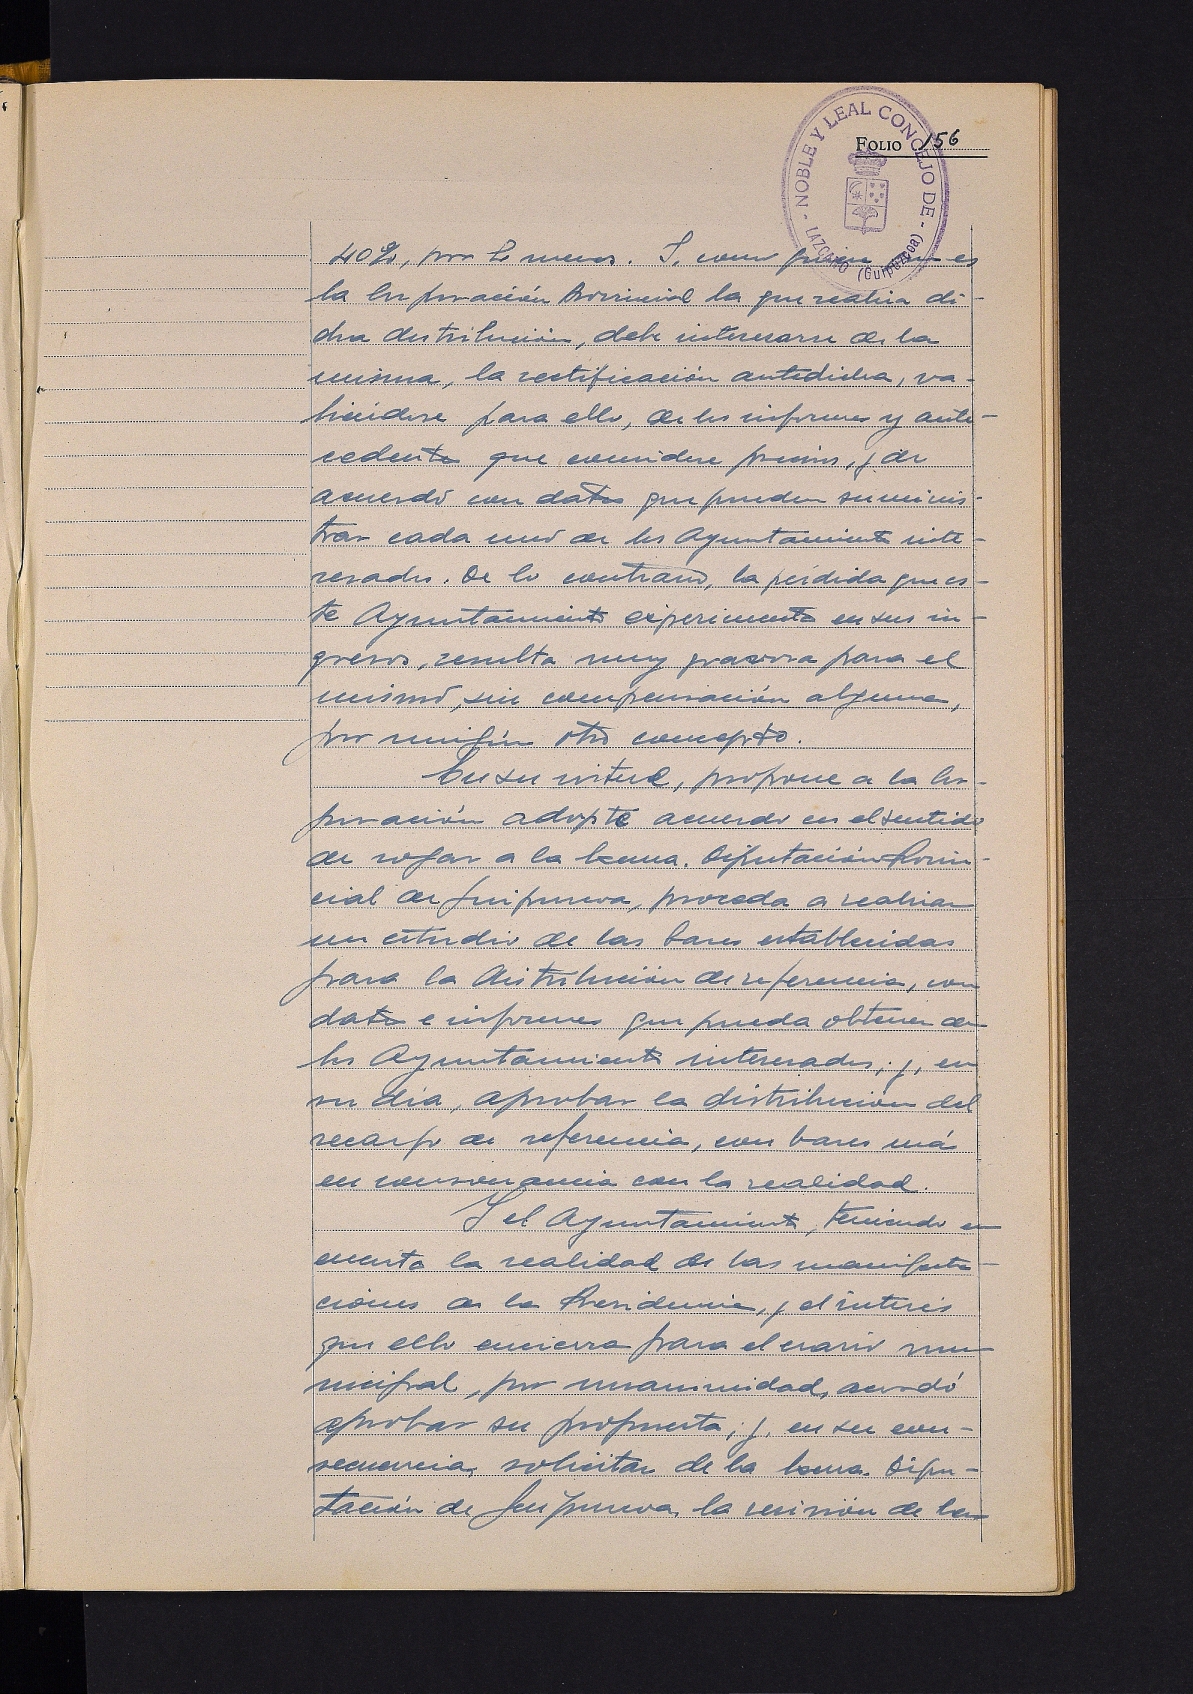 NOBLE Y LEAL CONCEJO DE - LAZCANO (Guipúzcoa) -
FOLIO 156
40%, por lo menos. Y, como quiera que es
la Corporación Provincial la que realiza di-
cha distribución, debe interesarse de la
misma, la rectificación antedicha, va-
liéndose para ello, de los informes y ante-
cedentes que considere precisos, y de
acuerdo con datos que pueden suminis-
trar cada uno de los Ayuntamientos inte-
resados. De lo contrario, la pérdida que es-
te Ayuntamiento experimenta en sus in-
gresos, resulta muy gravosa para el
mismo, sin compensación alguna,
por ningún otro concepto.
En su virtud, propone a la Cor-
poración adopte acuerdo en el sentido
de rogar a la Excma. Diputación Provin-
cial de Guipúzcoa, proceda a realizar
un estudio de las bases establecidas
para la distribución de referencia, con
datos e informes que pueda obtener de
los Ayuntamientos interesados, y, en
su día, aprobar la distribución del
recargo de referencia, con bases más
en consonancia con la realidad.
Y el Ayuntamiento, teniendo en
cuenta la realidad de las manifesta-
ciones de la Presidencia, y el interés
que ello encierra para el erario mu-
nicipal, por unanimidad, acordó
aprobar su propuesta; y, en su con-
secuencia, solicitar de la Excma. Dipu-
tación de Guipúzcoa, la revisión de las